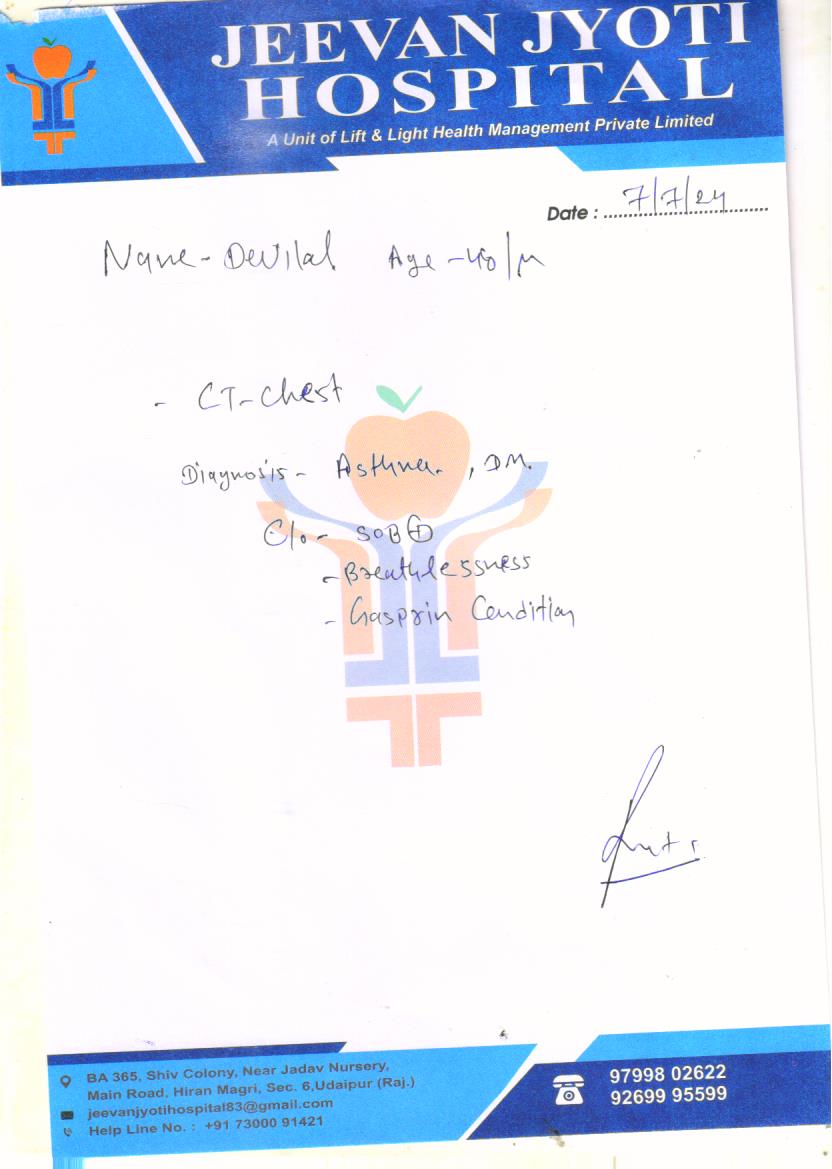 JEEVAN JYOTI
HOSPITAL
A Unit of Lift & Light Health Management Private Limited
Date : 7/7/24
Name - Devilal Age - 40/M
- CT-Chest
Diagnosis - Asthma. , DM.
C/o - SOB⊕
- Breathlessness
- Gasprin Condition
BA 365, Shiv Colony, Near Jadav Nursery,
Main Road, Hiran Magri, Sec. 6,Udaipur (Raj.)
jeevanjyotihospital83@gmail.com
Help Line No. : +91 73000 91421
97998 02622
92699 95599